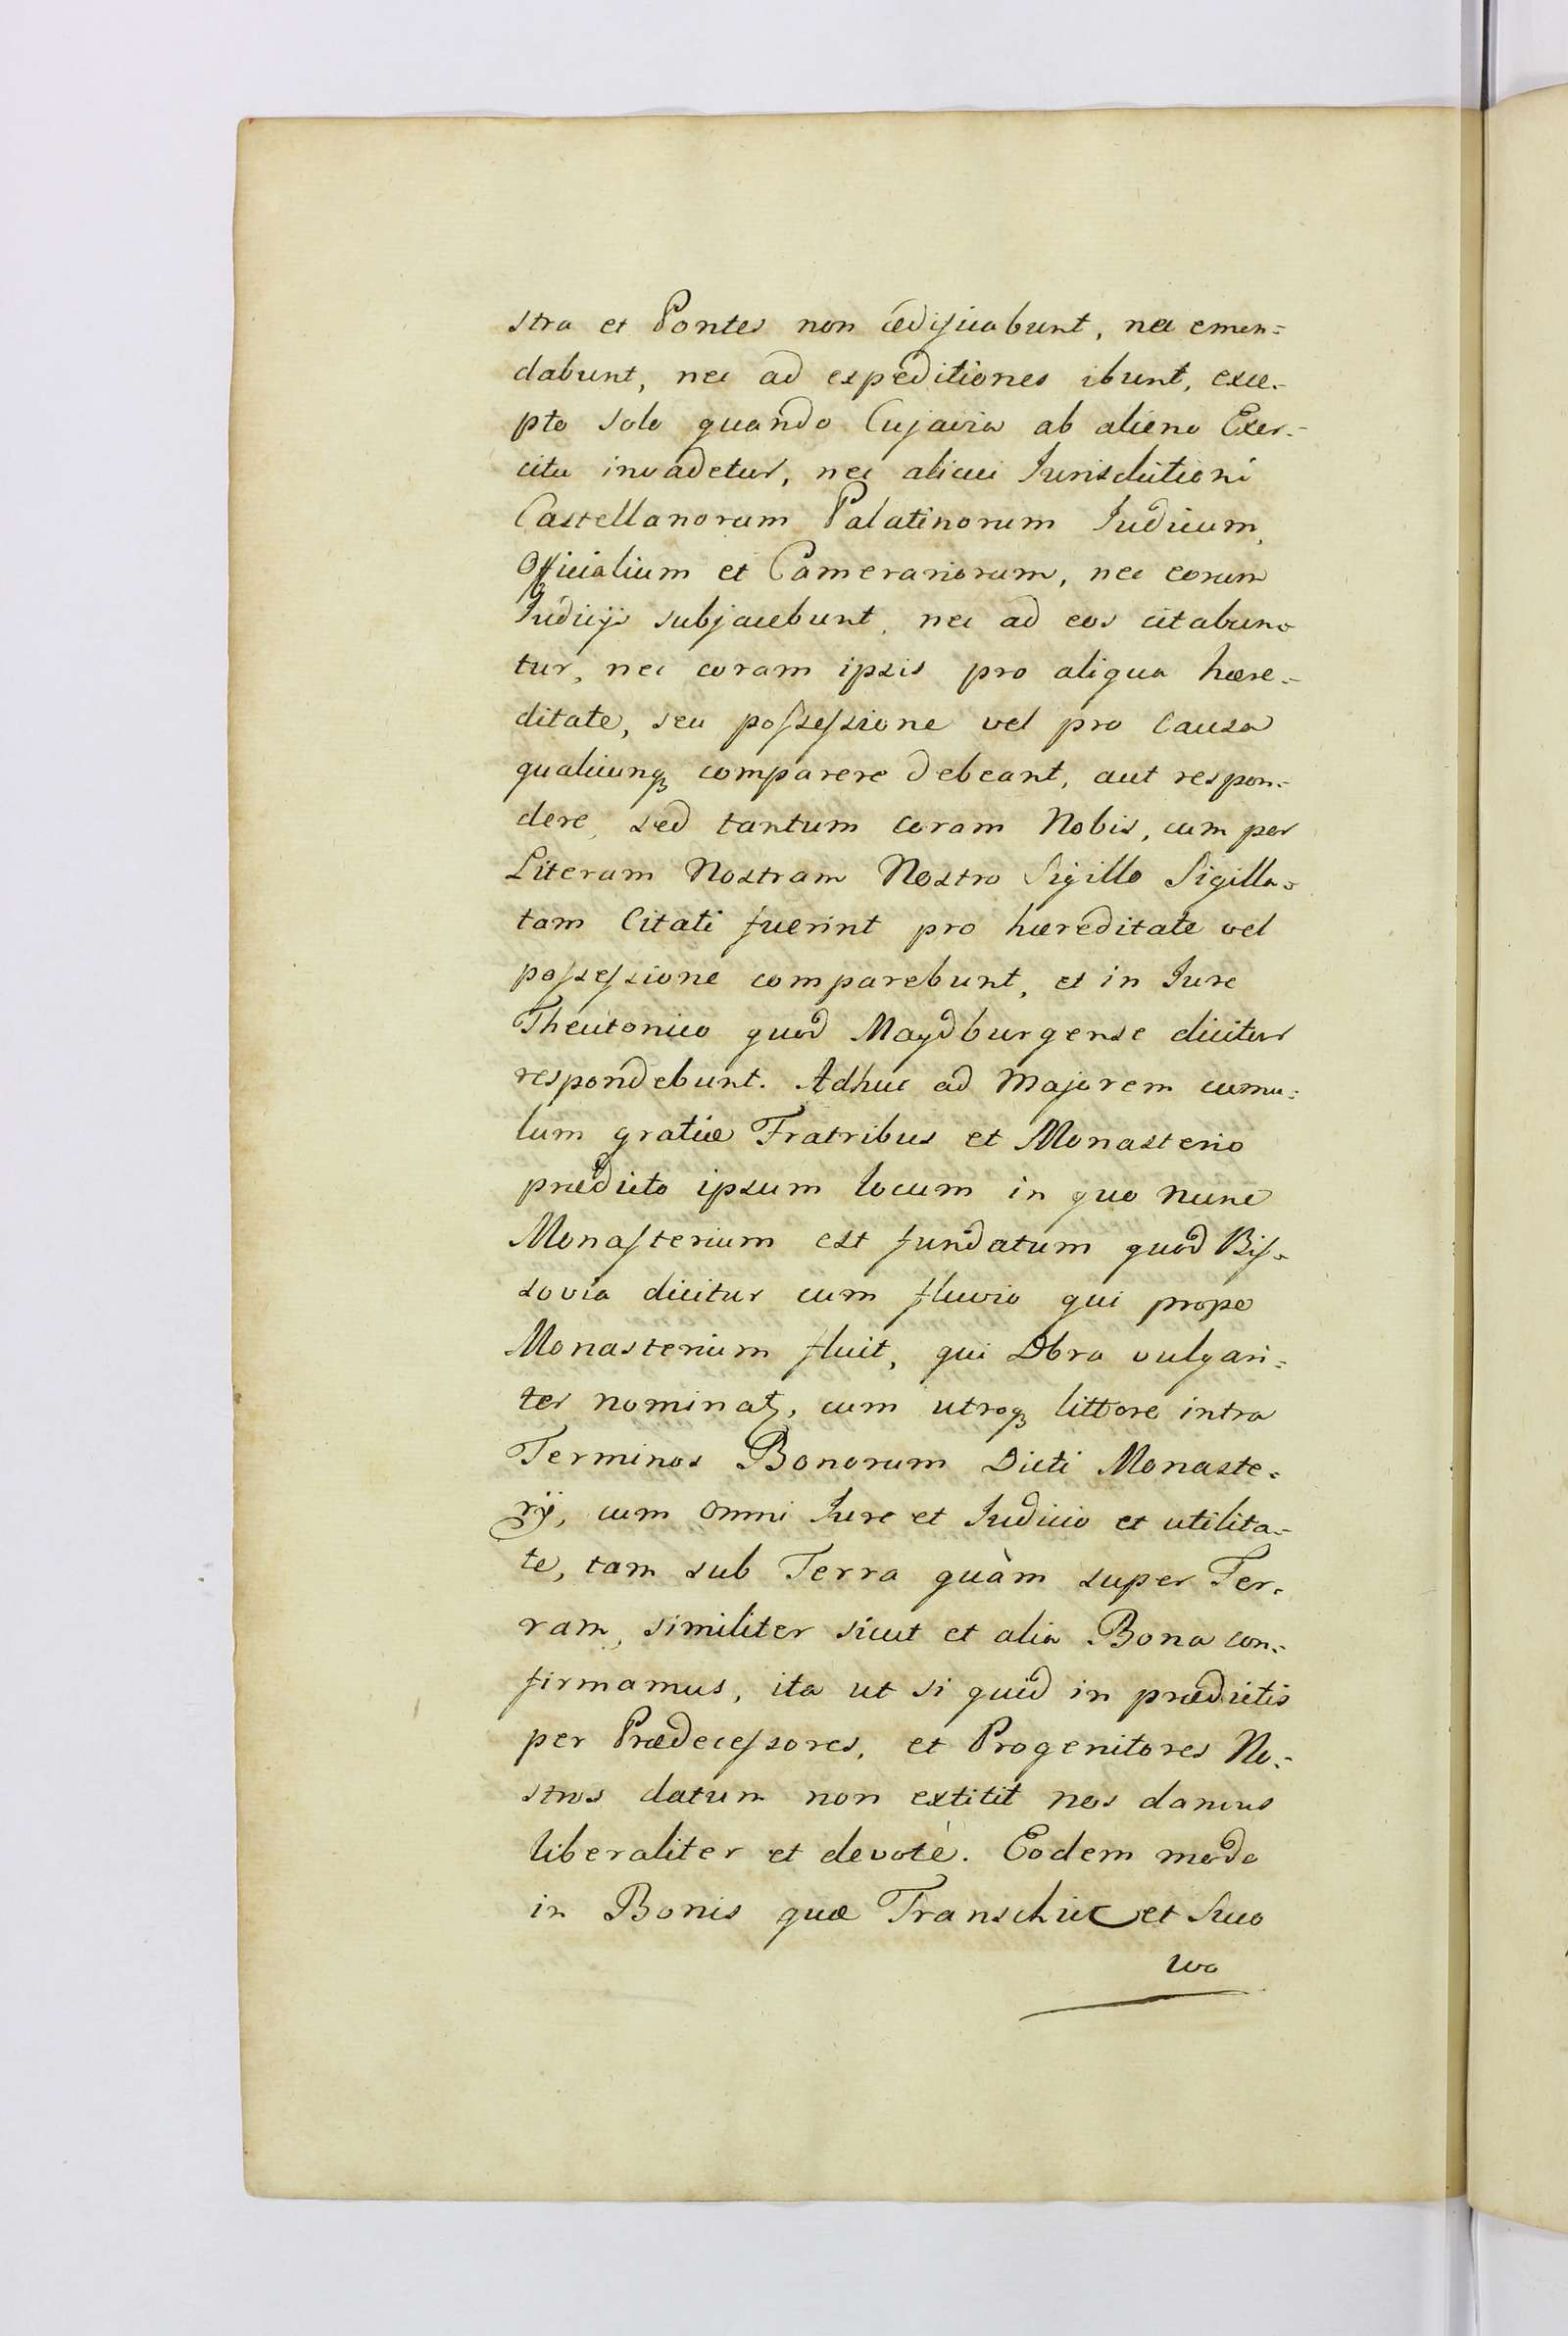 stra et Pontes non ædificabunt, nec emen=
dabunt, nec ad expeditiones ibunt, exce=
pto solo quando Cujavia ab alieno Exer=
citu invadetur, nec alicui Jurisdictioni
Castellanorum Palatinorum Judicum,
Officialium et Camerariorum, nec eorum
Judicijs subjacebunt, nec ad eos citabun=
tur, nec coram ipsis pro aliqua hære=
ditate, seu possessione vel pro Causa
qualicunqȝ comparere debeant, aut respon=
dere, sed tantum coram Nobis, cum per
Literam Nostram Nostro Sigillo Sigilla=
tam Citati fuerint pro hæreditate vel
possessione comparebunt, et in Jure
Theutonico quod Maydburgense dicitur
respondebunt. Adhuc ad Majorem cumu=
lum gratiæ Fratribus et Monasterio
prædicto ipsum locum in quo nunc
Monasterium est fundatum quod Bis=
sovia dicitur cum fluvio qui prope
Monasterium fluit, qui Dbra vulgari=
ter nominatȝ, cum utroqȝ littore intra
Terminos Bonorum Dicti Monaste=
rij, cum Omni Jure et Judicio et utilita=
te, tam sub Terra quàm super Ter=
ram, similiter sicut et alia Bona con=
firmamus, ita ut si quid in prædictis
per Prædecessores, et Progenitores No=
stros datum non extitit nos damus
liberaliter et devotè. Eodem modo
in Bonis quæ Transchic et Suo
wo